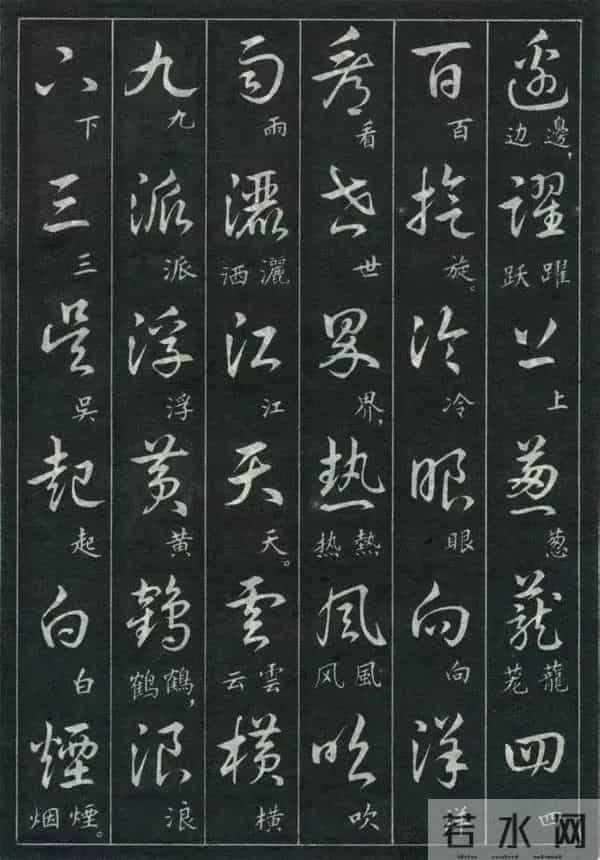 邊邊，边躍躍跃上上葱葱蘢蘢茏四四
百百旋旋。冷冷眼眼向向洋洋
看看世世界界，熱熱热風風风吹吹
雨雨灑灑洒江江天天。雲雲云橫橫
九九派派浮浮黄黄鶴鶴，鹤浪浪
下下三三吳吳起起白白煙煙。烟
若水网